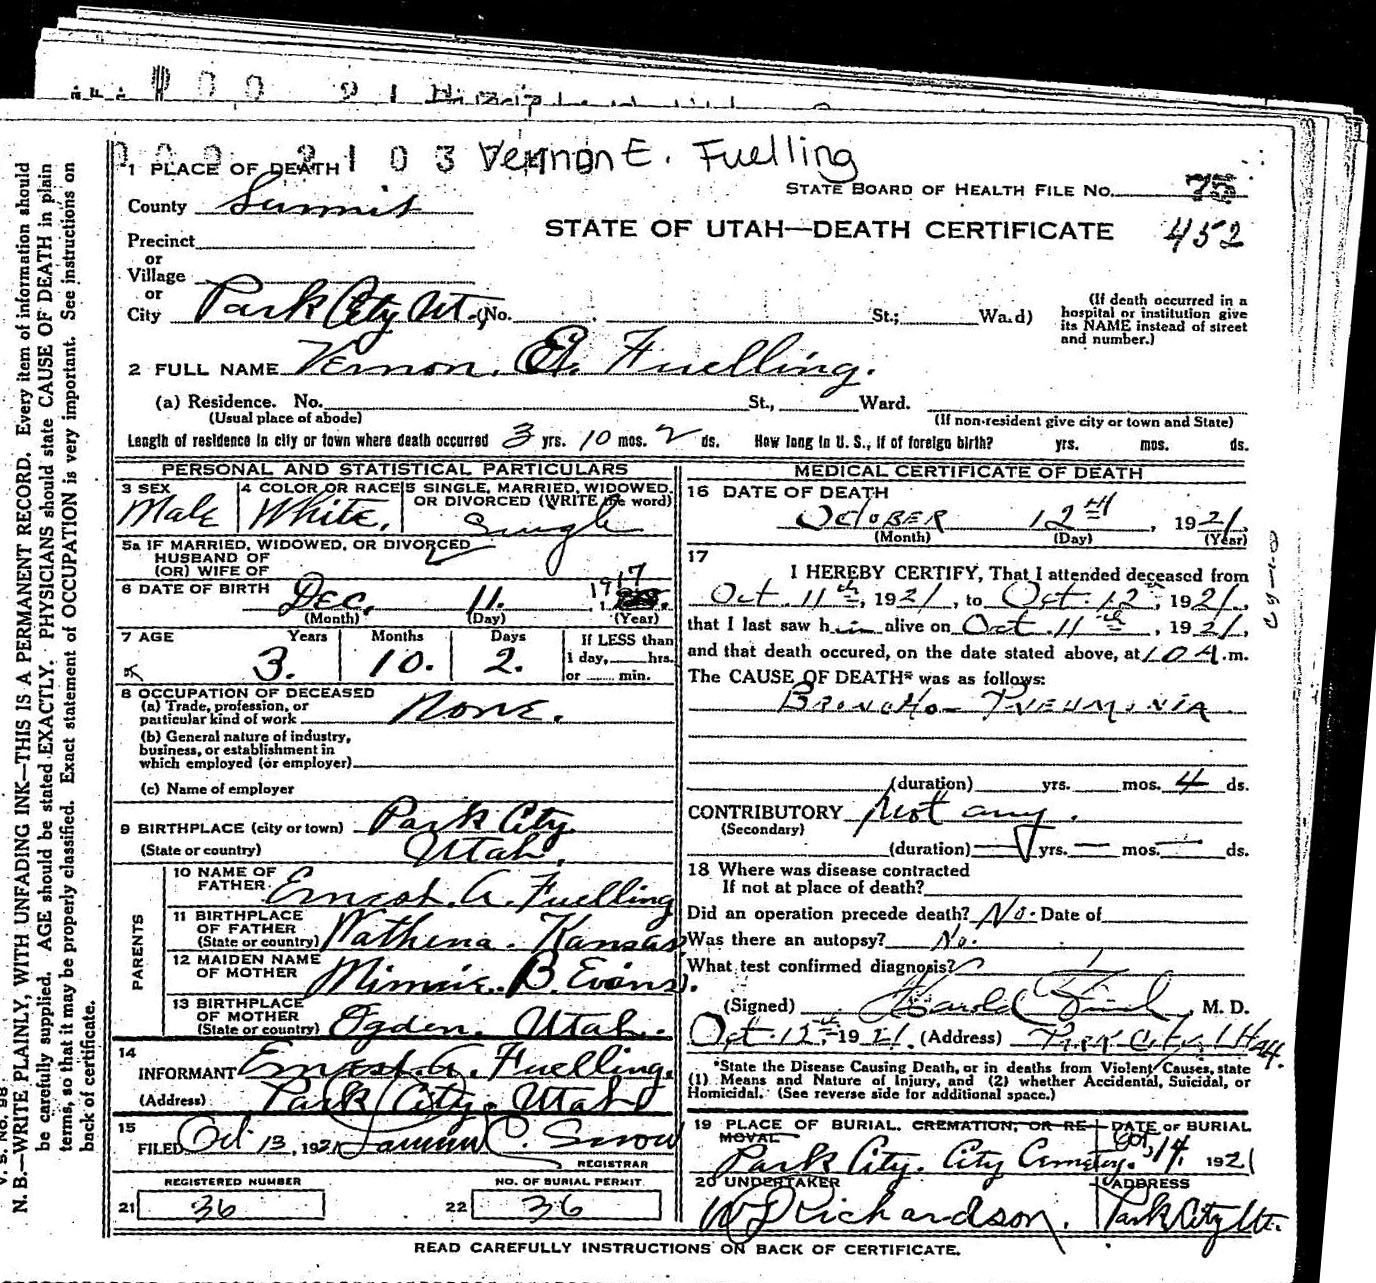 2103 Vernon E. Fuelling
1 PLACE OF DEATH
STATE BOARD OF HEALTH FILE NO. 75
County Summit
STATE OF UTAH—DEATH CERTIFICATE 452
Precinct
or
Village
or
City Park City Ut. (No. St.; Ward)
(If death occurred in a hospital or institution give its NAME instead of street and number.)
2 FULL NAME Vernon. E. Fuelling.
(a) Residence. No. St., Ward.
(Usual place of abode) (If non-resident give city or town and State)
Length of residence in city or town where death occurred 3 yrs. 10 mos. 2 ds. How long in U. S., if of foreign birth? yrs. mos. ds.
PERSONAL AND STATISTICAL PARTICULARS
3 SEX Male
4 COLOR OR RACE White.
5 SINGLE, MARRIED, WIDOWED, OR DIVORCED (WRITE the word) Single
5a IF MARRIED, WIDOWED, OR DIVORCED
HUSBAND OF
(OR) WIFE OF
6 DATE OF BIRTH Dec. 11. 1917
(Month) (Day) (Year)
7 AGE Years Months Days If LESS than
3. 10. 2. 1 day, hrs.
or min.
8 OCCUPATION OF DECEASED
(a) Trade, profession, or
particular kind of work None.
(b) General nature of industry,
business, or establishment in
which employed (or employer)
(c) Name of employer
9 BIRTHPLACE (city or town) Park City.
(State or country) Utah.
PARENTS
10 NAME OF
FATHER Ernest. A. Fuelling
11 BIRTHPLACE
OF FATHER
(State or country) Wathena. Kansas
12 MAIDEN NAME
OF MOTHER Minnie. B. Evans.
13 BIRTHPLACE
OF MOTHER
(State or country) Ogden. Utah.
14
INFORMANT Ernest. A. Fuelling.
(Address) Park City. Utah
15
FILED Oct 13, 1921 C. Snow
REGISTRAR
REGISTERED NUMBER NO. OF BURIAL PERMIT
21 36 22 36
MEDICAL CERTIFICATE OF DEATH
16 DATE OF DEATH
October 12th, 1921.
(Month) (Day) (Year)
17
I HEREBY CERTIFY, That I attended deceased from
Oct. 11th, 1921, to Oct. 12, 1921,
that I last saw him alive on Oct. 11th, 1921,
and that death occured, on the date stated above, at 10 A.m.
The CAUSE OF DEATH* was as follows:
Broncho-Pneumonia
(duration) yrs. mos. 4 ds.
CONTRIBUTORY Not any.
(Secondary)
(duration) — yrs. — mos. — ds.
18 Where was disease contracted
If not at place of death?
Did an operation precede death? No. Date of
Was there an autopsy? No.
What test confirmed diagnosis?
(Signed) Harold, M. D.
Oct. 12th 1921. (Address) Park City Utah.
*State the Disease Causing Death, or in deaths from Violent Causes, state
(1) Means and Nature of Injury, and (2) whether Accidental, Suicidal, or
Homicidal. (See reverse side for additional space.)
19 PLACE OF BURIAL. CREMATION, OR RE- DATE OF BURIAL
MOVAL
Park City. City Cemetery. Oct, 14, 1921
20 UNDERTAKER ADDRESS
W D Richardson. Park City Ut.
READ CAREFULLY INSTRUCTIONS ON BACK OF CERTIFICATE.
V. S. No. 98
N. B.—WRITE PLAINLY, WITH UNFADING INK—THIS IS A PERMANENT RECORD. Every item of information should
be carefully supplied. AGE should be stated EXACTLY. PHYSICIANS should state CAUSE OF DEATH in plain
terms, so that it may be properly classified. Exact statement of OCCUPATION is very important. See instructions on
back of certificate.